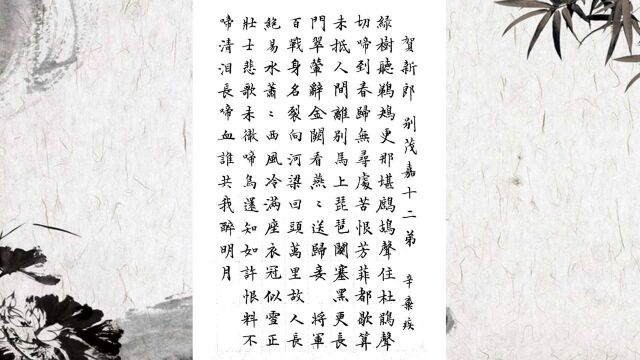 賀新郎 別茂嘉十二弟 辛棄疾
綠樹聽鵜鴂更那堪鷓鴣聲住杜鵑聲
切啼到春歸無尋處苦恨芳菲都歇算
未抵人間離別馬上琵琶關塞黑更長
門翠輦辭金闕看燕〻送歸妾 將軍
百戰身名裂向河梁回頭萬里故人長
絕易水蕭〻西風冷滿座衣冠似雪正
壯士悲歌未徹啼鳥還知如許恨料不
啼清泪長啼血誰共我醉明月